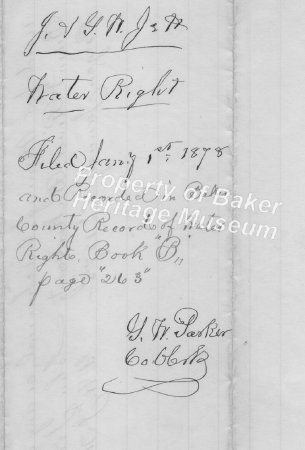 J. & G. W. Jett
Water Right
Filed Jany 1st 1878
and Recorded in Baker
County Records of Water
Rights. Book "B"
page "263"
G. W. Parker
Co Clerk
Property of Baker
Heritage Museum